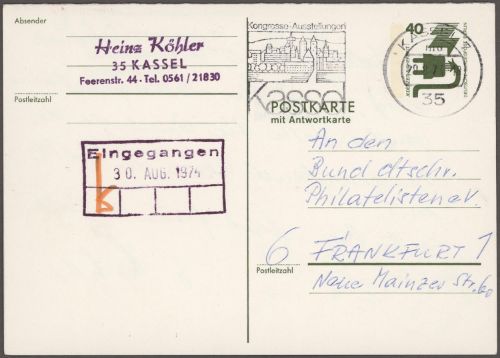 Absender
Heinz Köhler
35 KASSEL
Feerenstr. 44 · Tel. 0561 / 21830
Postleitzahl
Eingegangen
30. AUG. 1974
Kongresse · Ausstellungen
Kassel
40
KASSEL
35
POSTKARTE
mit Antwortkarte
An den
Bund dtschr.
Philatelisten eV
6 FRANKFURT 1
Postleitzahl
Neue Mainzer Str. 60